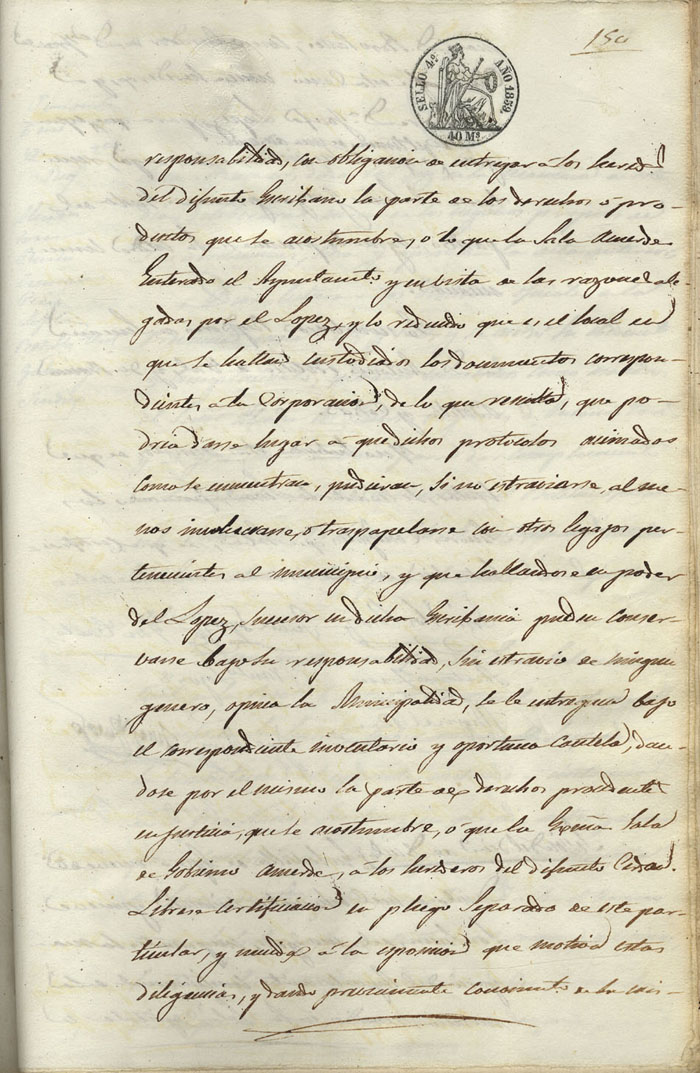 150
SELLO 4º AÑO 1859
40 Ms.
responsabilidad, con obligacion de entregar á los hered.s
del difunto Escribano la parte de los derechos ó pro-
ductos que se acostumbre, o lo que la Sala acuerde
Enterado el Ayuntamto. y en vista de las razones ale-
gadas por el Lopez, y lo reducido que es el local en
que se hallan custodiados los documentos correspon-
dientes á la Corporacion, de lo que resulta, que po-
dria darse lugar á que dichos protocolos acimados
como se encuentran, pudieran, si no estraviarse, al me-
nos involucrarse, o traspapelarse con otros legajos per-
tenecientes al municipio, y que hallandose en poder
del Lopez, sucesor en dicha Escribania pueden conser-
varse bajo su responsabilidad, sin estravio de ningun
genero, opina la Municipalidad, se le entreguen bajo
el correspondiente inventario y oportuna cautela, dan-
dose por el mismo la parte de derechos procedente
en justicia, que se acostumbre, ó que la Sala
de Gobierno acuerde, á los herederos del difunto
Librese certificacion en pliego separado de este par-
ticular, y unida á la esposicion que motiva estas
diligencias, y dando previamente conocimto. de la mis-